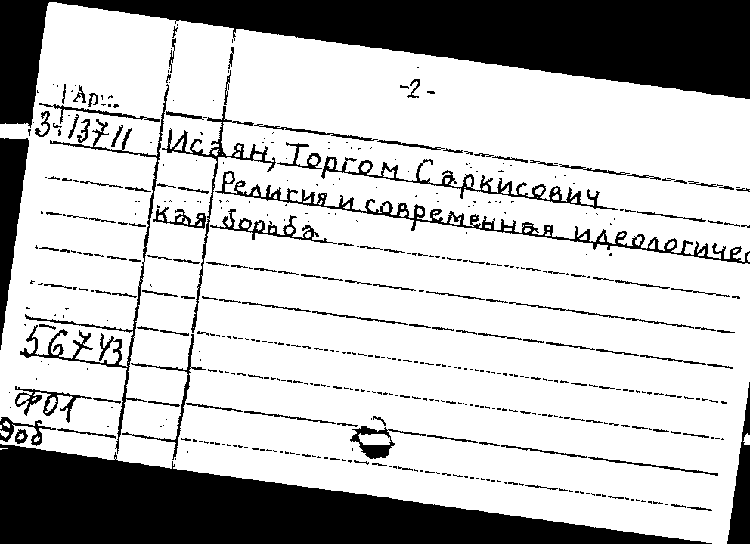 -2-
Арм.
3-13711
Исаян, Торгом Саркисович
Религия и современная идеологичес
кая борьба.
56743
Ф01